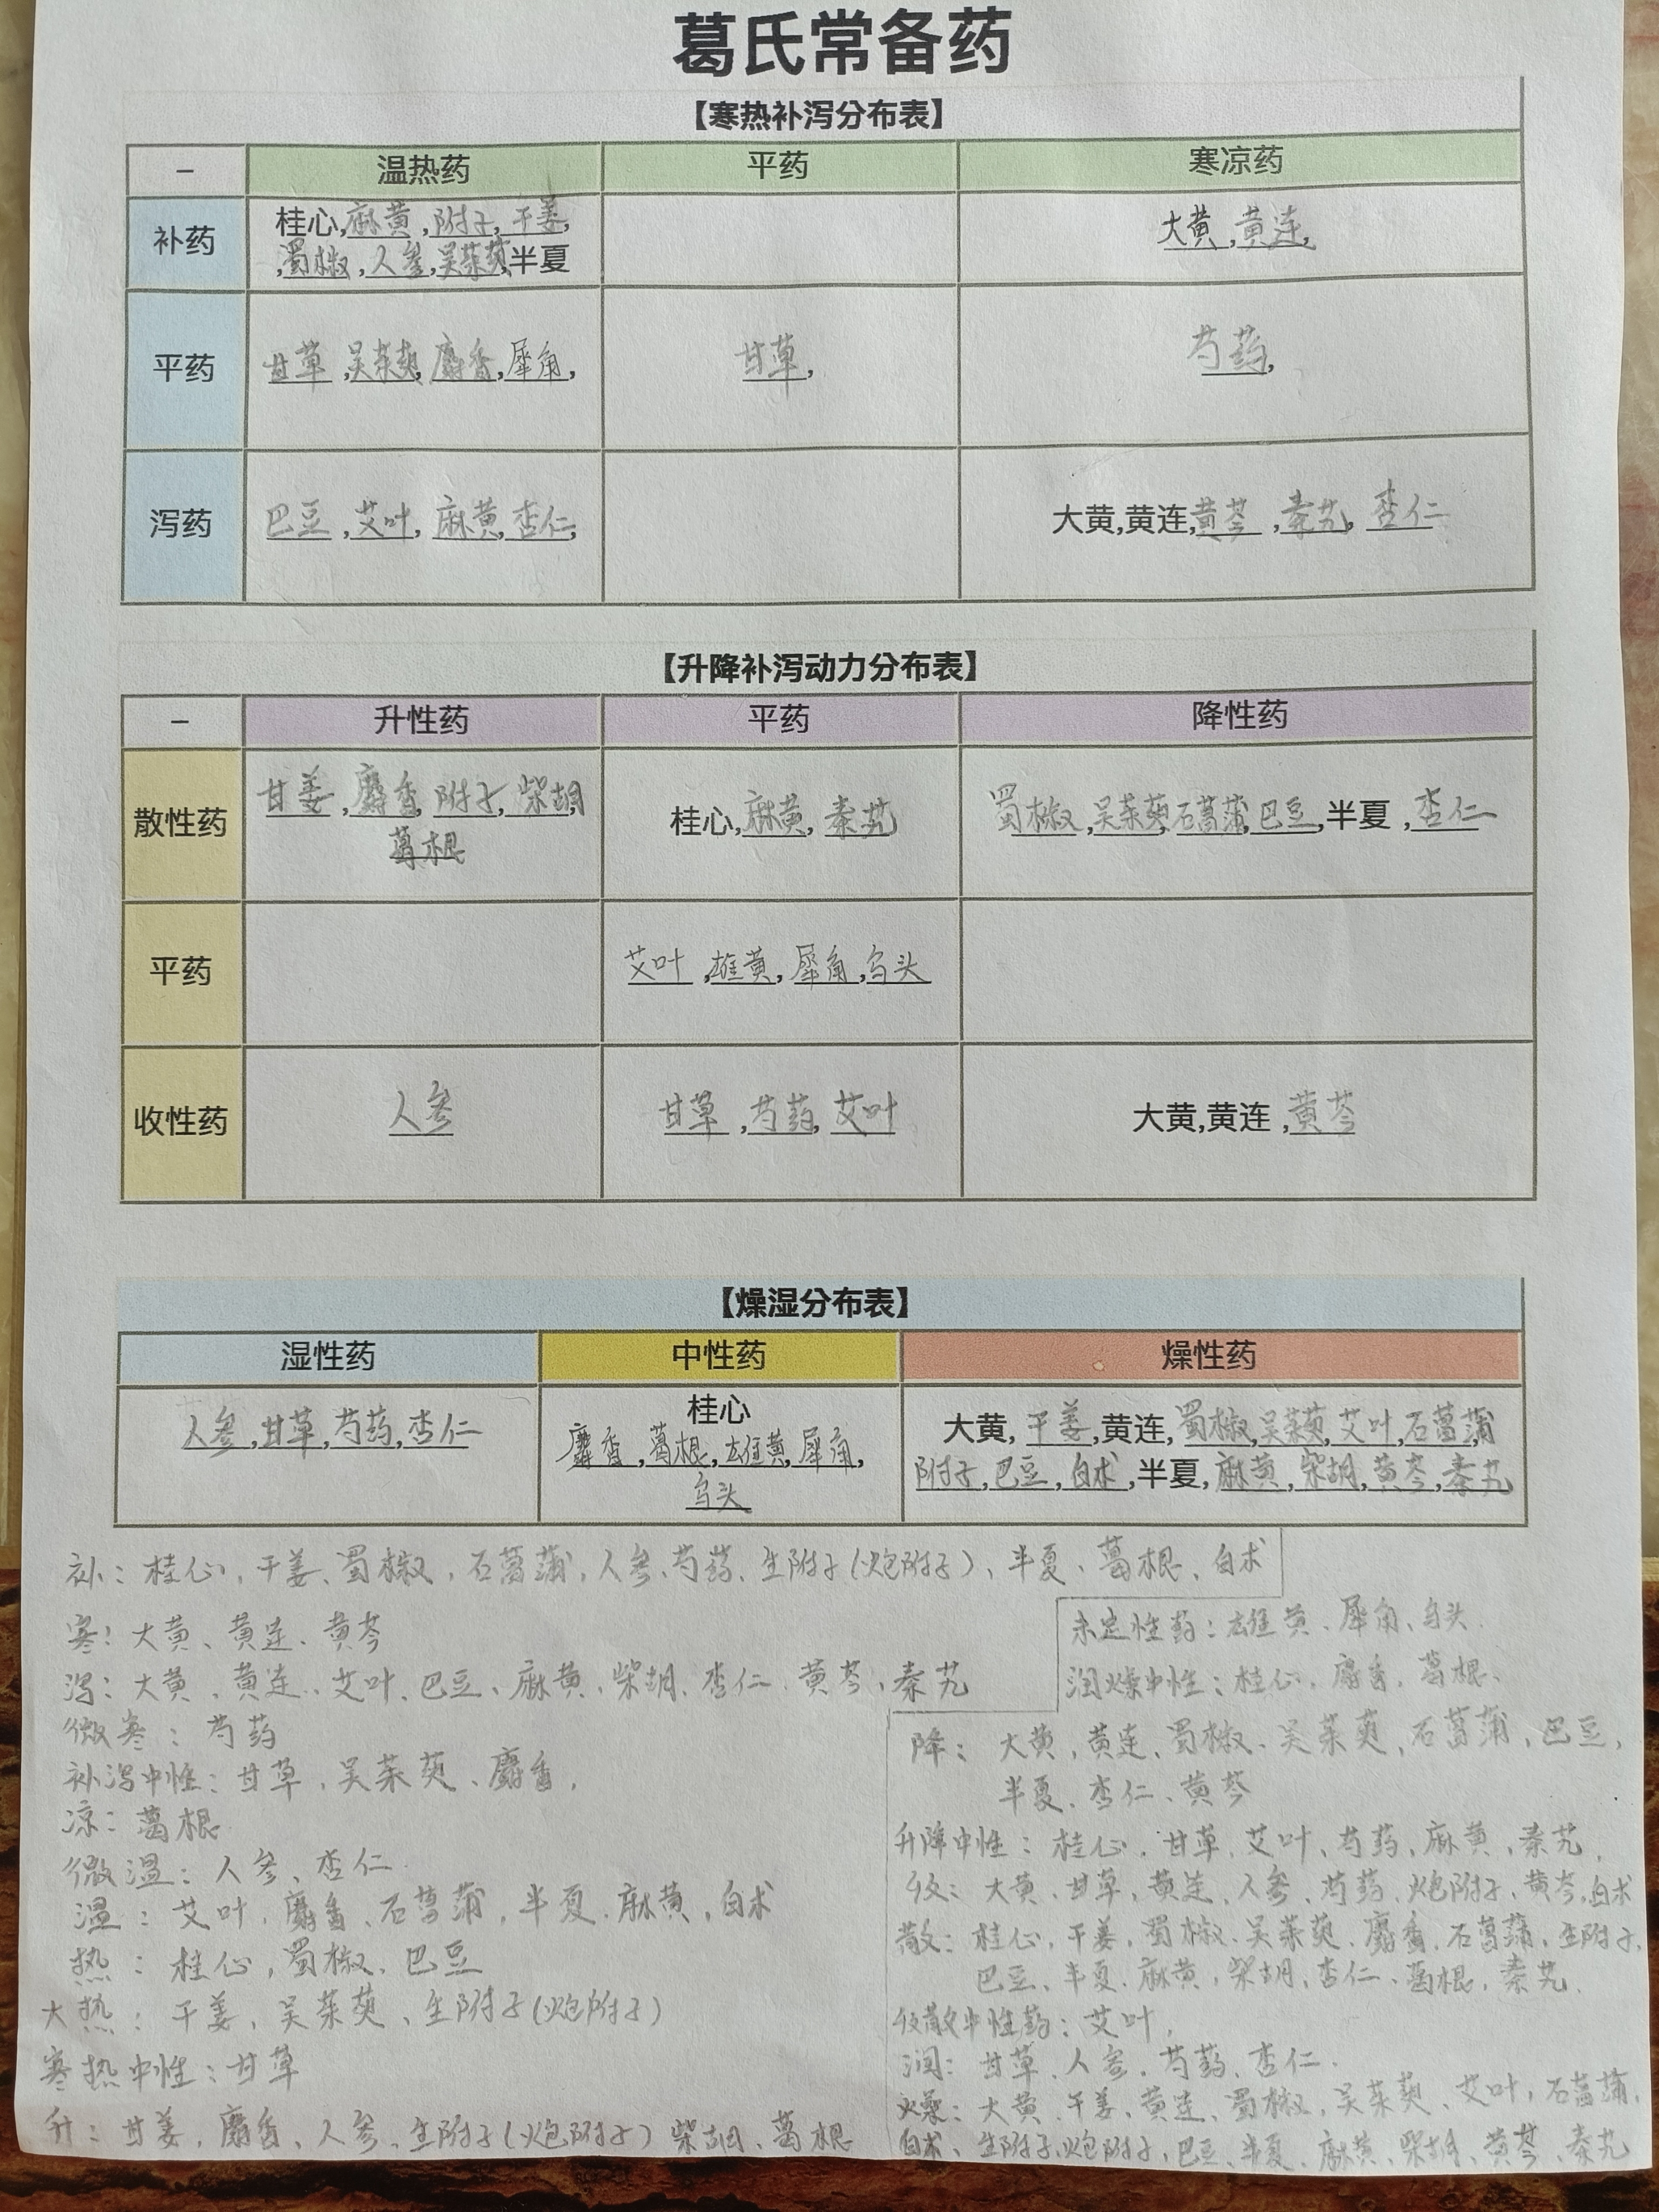 葛氏常备药
【寒热补泻分布表】
– 温热药 平药 寒凉药
补药 桂心,麻黄,附子,干姜, 大黄,黄连,
,蜀椒,人参,吴茱萸,半夏
平药 甘草,吴茱萸,麝香,犀角, 甘草, 芍药,
泻药 巴豆,艾叶,麻黄,杏仁, 大黄,黄连,黄芩,秦艽,杏仁
【升降补泻动力分布表】
– 升性药 平药 降性药
散性药 甘姜,麝香,附子,柴胡 桂心,麻黄,秦艽 蜀椒,吴茱萸,石菖蒲,巴豆,半夏,杏仁
葛根
平药 艾叶,雄黄,犀角,乌头
收性药 人参 甘草,芍药,艾叶 大黄,黄连,黄芩
【燥湿分布表】
湿性药 中性药 燥性药
人参,甘草,芍药,杏仁
桂心
麝香,葛根,雄黄,犀角,
乌头
大黄,干姜,黄连,蜀椒,吴茱萸,艾叶,石菖蒲
附子,巴豆,白术,半夏,麻黄,柴胡,黄芩,秦艽
补：桂心、干姜、蜀椒、石菖蒲、人参、芍药、生附子(炮附子)、半夏、葛根、白术
寒：大黄、黄连、黄芩
泻：大黄、黄连、艾叶、巴豆、麻黄、柴胡、杏仁、黄芩、秦艽
微寒：芍药
补泻中性：甘草，吴茱萸、麝香，
凉：葛根
微温：人参、杏仁
温：艾叶，麝香、石菖蒲，半夏、麻黄，白术
热：桂心，蜀椒、巴豆
大热：干姜，吴茱萸、生附子(炮附子)
寒热中性：甘草
升：甘姜，麝香、人参、生附子(炮附子)柴胡、葛根
未定性药：雄黄、犀角、乌头
润燥中性：桂心，麝香，葛根、
降：大黄，黄连、蜀椒、吴茱萸，石菖蒲，巴豆，
半夏、杏仁、黄芩
升降中性：桂心，甘草，艾叶、芍药，麻黄、秦艽，
收：大黄、甘草，黄连、人参、芍药、炮附子，黄芩，白术
散：桂心，干姜，蜀椒、吴茱萸、麝香，石菖蒲，生附子，
巴豆、半夏，麻黄，柴胡，杏仁、葛根，秦艽
收散中性药：艾叶，
润：甘草、人参，芍药、杏仁．
燥：大黄、干姜、黄连、蜀椒，吴茱萸、艾叶，石菖蒲，
白术、生附子、炮附子，巴豆、半夏、麻黄、柴胡、黄芩、秦艽